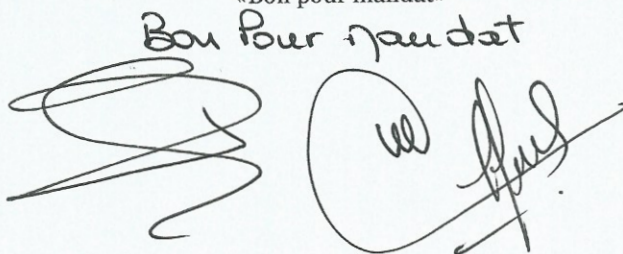 «Bon pour mandat»
Bon Pour mandat